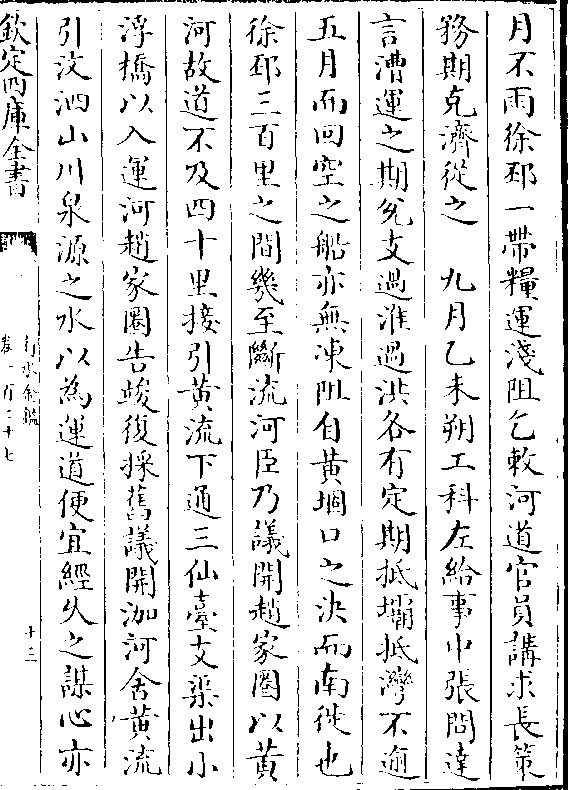 月不雨徐邳一帶糧運淺阻乞敕河道官員講求長策
務期克濟從之　九月乙未朔工科左給事中張問達
言漕運之期兌支過淮過洪各有定期抵壩抵灣不逾
五月而回空之船亦無凍阻自黄堌口之決而南徙也
徐邳三百里之間幾至斷流河臣乃議開趙家圈以黄
河故道不及四十里接引黄流下通三仙臺支渠出小
浮橋以入運河趙家圈告竣復採舊議開泇河舍黄流
引汶泗山川泉源之水以為運道便宜經久之謀心亦
欽定四庫全書
行水金鑑
卷一百二十七
十三